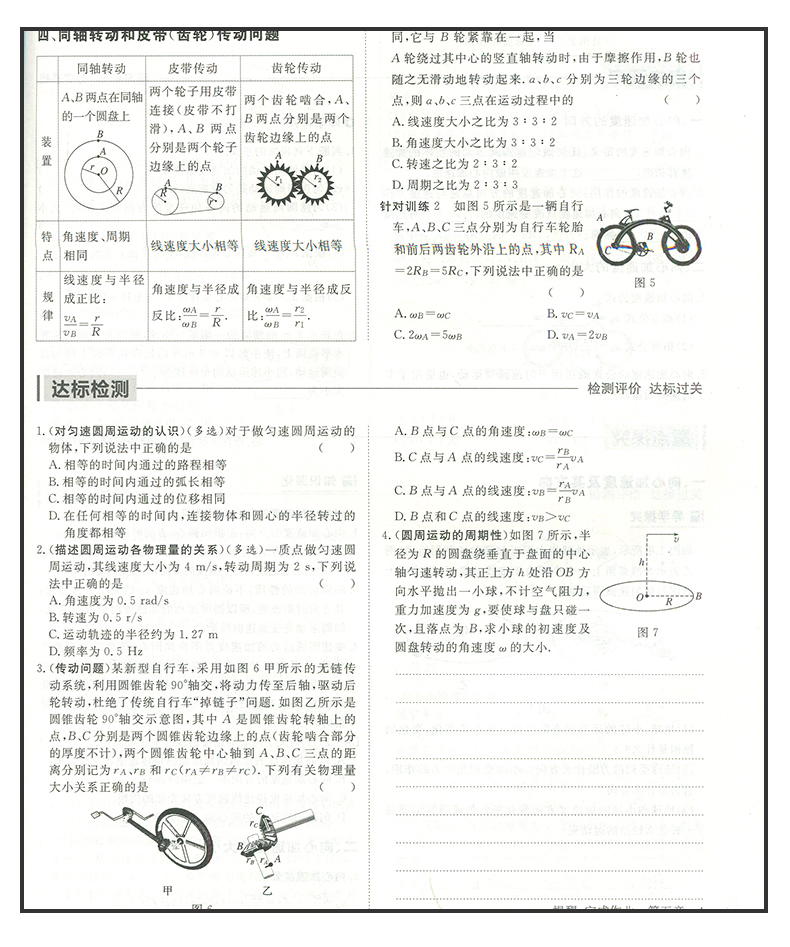 四、同轴转动和皮带(齿轮)传动问题
同轴转动 皮带传动 齿轮传动
装置
A、B两点在同轴的一个圆盘上
B
A
r O
R
两个轮子用皮带连接(皮带不打滑),A、B 两点分别是两个轮子边缘上的点
A B
r
R
两个齿轮啮合,A、B两点分别是两个齿轮边缘上的点
A B
r₁ r₂
特点
角速度、周期相同
线速度大小相等
线速度大小相等
规律
线速度与半径成正比:
vA/vB=r/R
角速度与半径成反比:ωA/ωB=r/R.
角速度与半径成反比:ωA/ωB=r₂/r₁.
同,它与 B 轮紧靠在一起,当
A 轮绕过其中心的竖直轴转动时,由于摩擦作用,B 轮也
随之无滑动地转动起来.a、b、c 分别为三轮边缘的三个
点,则a、b、c三点在运动过程中的 ( )
A.线速度大小之比为 3∶3∶2
B.角速度大小之比为 3∶3∶2
C.转速之比为 2∶3∶2
D.周期之比为 2∶3∶3
针对训练 2 如图 5 所示是一辆自行
车,A、B、C三点分别为自行车轮胎
和前后两齿轮外沿上的点,其中 RA
=2RB=5RC,下列说法中正确的是
( )
A
C B
图 5
A.ωB=ωC B.vC=vA
C.2ωA=5ωB D.vA=2vB
达标检测
检测评价 达标过关
1.(对匀速圆周运动的认识)(多选)对于做匀速圆周运动的
物体,下列说法中正确的是 ( )
A.相等的时间内通过的路程相等
B.相等的时间内通过的弧长相等
C.相等的时间内通过的位移相同
D.在任何相等的时间内,连接物体和圆心的半径转过的
角度都相等
2.(描述圆周运动各物理量的关系)(多选)一质点做匀速圆
周运动,其线速度大小为 4 m/s,转动周期为 2 s,下列说
法中正确的是 ( )
A.角速度为 0.5 rad/s
B.转速为 0.5 r/s
C.运动轨迹的半径约为 1.27 m
D.频率为 0.5 Hz
3.(传动问题)某新型自行车,采用如图 6 甲所示的无链传
动系统,利用圆锥齿轮 90°轴交,将动力传至后轴,驱动后
轮转动,杜绝了传统自行车“掉链子”问题.如图乙所示是
圆锥齿轮 90°轴交示意图,其中 A 是圆锥齿轮转轴上的
点,B、C分别是两个圆锥齿轮边缘上的点(齿轮啮合部分
的厚度不计),两个圆锥齿轮中心轴到 A、B、C 三点的距
离分别记为 rA、rB 和 rC(rA≠rB≠rC).下列有关物理量
大小关系正确的是 ( )
C
rC
B
rB rA A
甲 乙
A.B 点与 C 点的角速度:ωB=ωC
B.C 点与 A 点的线速度:vC=rB/rA vA
C.B 点与 A 点的线速度:vB=rA/rB vA
D.B 点和 C 点的线速度:vB>vC
4.(圆周运动的周期性)如图 7 所示,半
径为 R 的圆盘绕垂直于盘面的中心
轴匀速转动,其正上方 h 处沿 OB 方
向水平抛出一小球,不计空气阻力,
重力加速度为 g,要使球与盘只碰一
次,且落点为 B,求小球的初速度及
圆盘转动的角速度 ω 的大小.
v
h
O R B
图 7